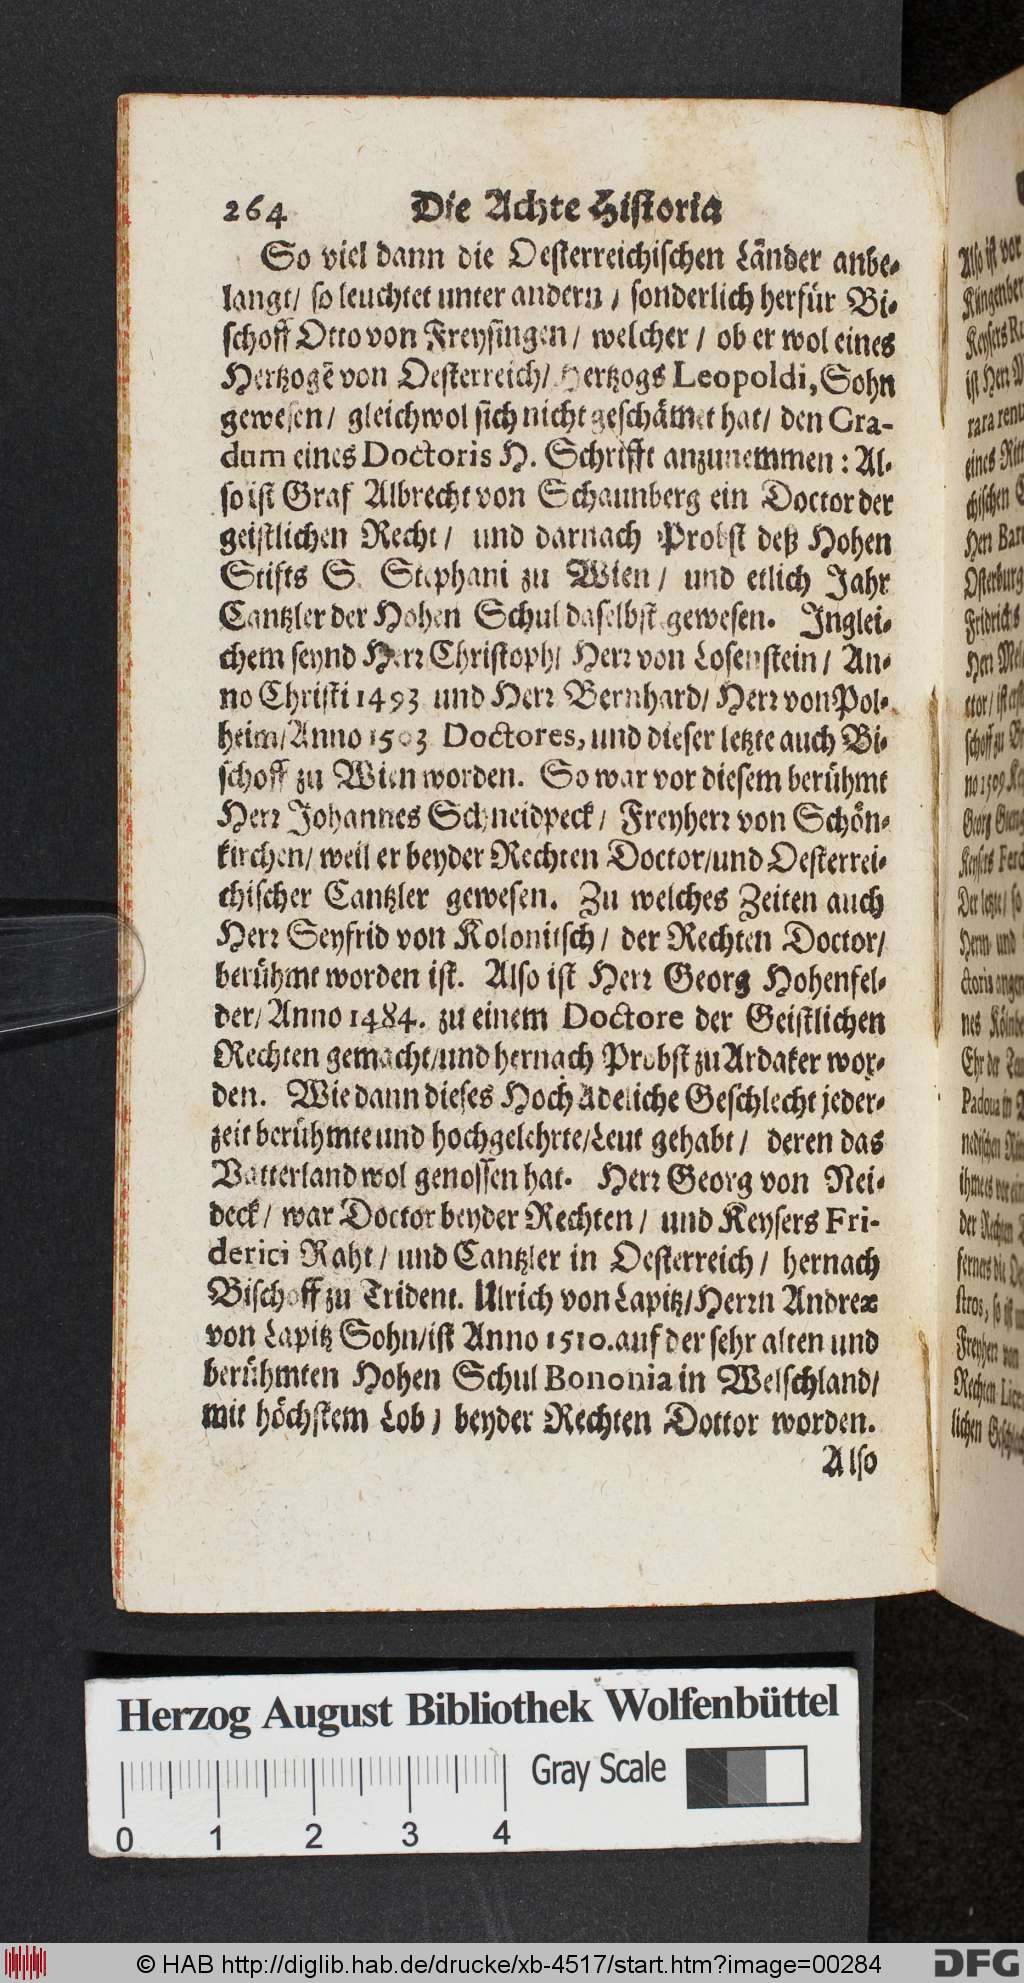 264 Die Achte Historia
So viel dann die Oesterreichischen Länder anbe-
langt/ so leuchtet unter andern/ sonderlich herfür Bi-
schoff Otto von Freysingen/ welcher/ ob er wol eines
Hertzogē von Oesterreich/ Hertzogs Leopoldi, Sohn
gewesen/ gleichwol sich nicht geschämet hat/ den Gra-
dum eines Doctoris H. Schrifft anzunemmen: Al-
so ist Graf Albrecht von Schaunberg ein Doctor der
geistlichen Recht/ und darnach Probst deß Hohen
Stifts S. Stephani zu Wien/ und etlich Jahr
Cantzler der Hohen Schul daselbst gewesen. Inglei-
chem seynd Herr Christoph/ Herr von Losenstein/ An-
no Christi 1493 und Herr Bernhard/ Herr von Pol-
heim/ Anno 1503 Doctores, und dieser letzte auch Bi-
schoff zu Wien worden. So war vor diesem berühmt
Herr Johannes Schneidpeck/ Freyherr von Schön-
kirchen/ weil er beyder Rechten Doctor/ und Oesterrei-
chischer Cantzler gewesen. Zu welches Zeiten auch
Herr Seyfrid von Kolonitsch/ der Rechten Doctor/
berühmt worden ist. Also ist Herr Georg Hohenfel-
der/ Anno 1484. zu einem Doctore der Geistlichen
Rechten gemacht/ und hernach Probst zu Ardaker wor-
den. Wie dann dieses Hoch Adeliche Geschlecht jeder-
zeit berühmte und hochgelehrte/ Leut gehabt/ deren das
Vatterland wol genossen hat. Herr Georg von Nei-
deck/ war Doctor beyder Rechten/ und Keysers Fri-
derici Raht/ und Cantzler in Oesterreich/ hernach
Bischoff zu Trident. Ulrich von Lapitz/ Herrn Andreæ
von Lapitz Sohn/ ist Anno 1510. auf der sehr alten und
berühmten Hohen Schul Bononia in Welschland/
mit höchstem Lob/ beyder Rechten Dottor worden.
Also
Also ist vor
Klingenber
ist Herr
rara
eines
chischen
Herr Bar
Osterburg
Fridrichs
Herr
schoff zu
no 1509
Georg
Keysers Ferd
Der letzte/ so
Herrn und
ctoris
nes
Ehr der
Padoua in
der Rechten
ferners die
stros, so ist
Freyherr von
Rechten
lichen
Herzog August Bibliothek Wolfenbüttel
Gray Scale
0 1 2 3 4
© HAB http://diglib.hab.de/drucke/xb-4517/start.htm?image=00284
DFG